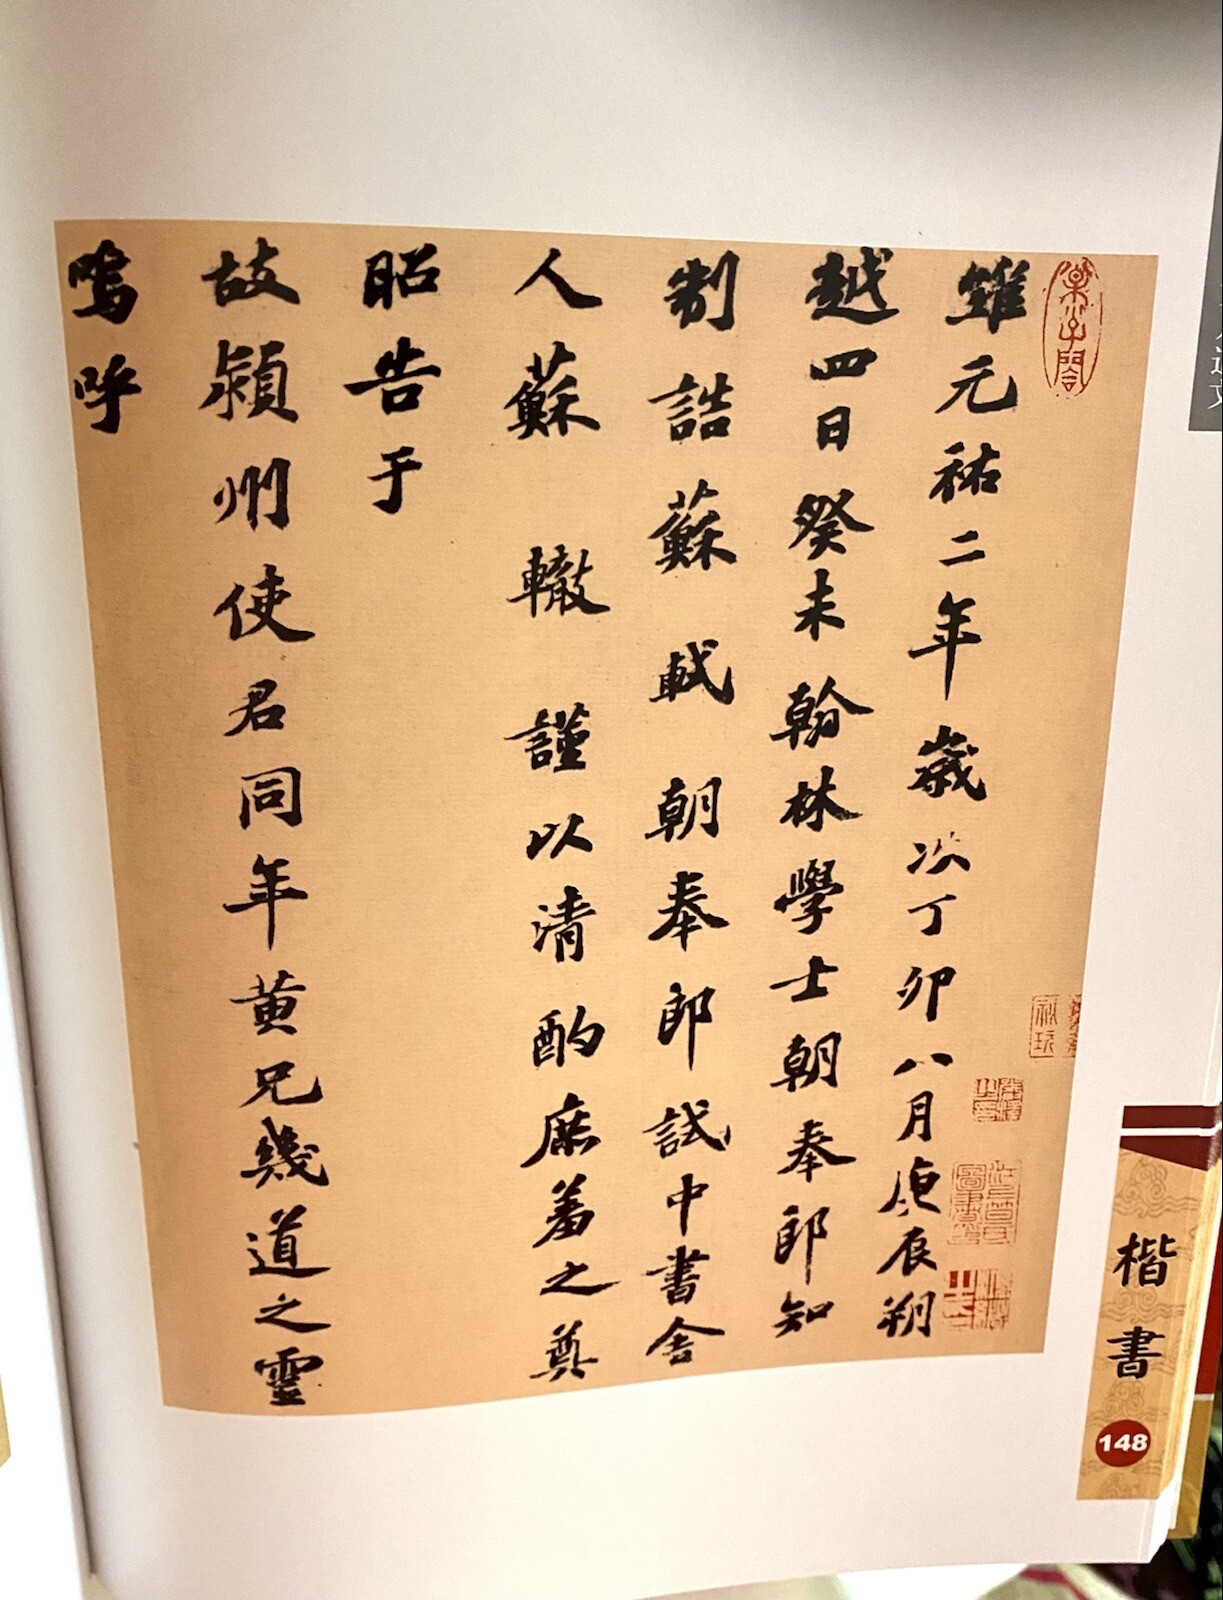 維元祐二年歲次丁卯八月庚辰朔
越四日癸未翰林學士朝奉郎知
制誥蘇軾朝奉郎試中書舍
人蘇轍謹以清酌庶羞之奠
昭告于
故潁州使君同年黄兄幾道之靈
嗚呼
楷書
148